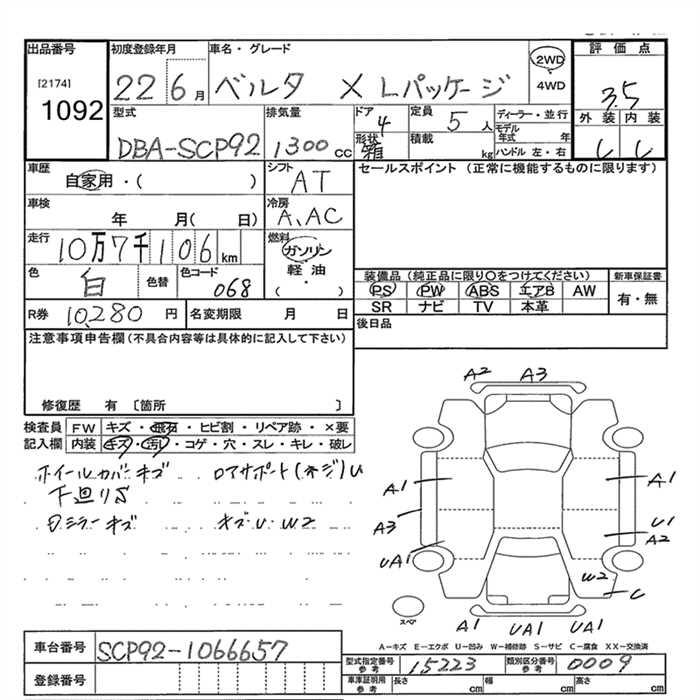 出品番号
[2174]
1092
初度登録年月
22 6月
車名・グレード
ベルタ X Lパッケージ
2WD
4WD
評価点
3.5
外装 内装
C C
型式
DBA-SCP92
排気量
1300cc
ドア
4
形状
箱
定員
5人
積載
kg
ディーラー・並行
モデル年式 年
ハンドル 左・右
車歴
自家用・( )
シフト
AT
セールスポイント (正常に機能するものに限ります)
車検
年 月( 日)
冷房
A.AC
走行
10万7千106km
燃料
ガソリン
軽油
( ・ )
色
白
色替
色コード
068
装備品(純正品に限り○をつけてください)
PS PW ABS エアB AW
SR ナビ TV 本革
新車保証書
有・無
R券 10,280円
名変期限 月 日
後日品
注意事項申告欄(不具合内容等は具体的に記入して下さい)
修復歴 有〔箇所 〕
検査員
記入欄
FW キズ・飛石・ヒビ割・リペア跡・×要
内装 キズ・汚れ・コゲ・穴・スレ・キレ・破レ
ホイールカバーキズ ロアサポート(ネジ)U
下廻りS
Dミラーキズ キズ・U・W2
A2 A3
A1 A1
A3 U1
A2
UA1
W2
U
スペア
A1 UA1 UA1
A-キズ E-エクボ U-凹み W-補修跡 S-サビ C-腐食 XX-交換済
車台番号 SCP92-1066657
登録番号
型式指定番号
参考
15223
類別区分番号
参考
0009
車庫証明用
参考
長さ cm
幅 cm
高さ cm